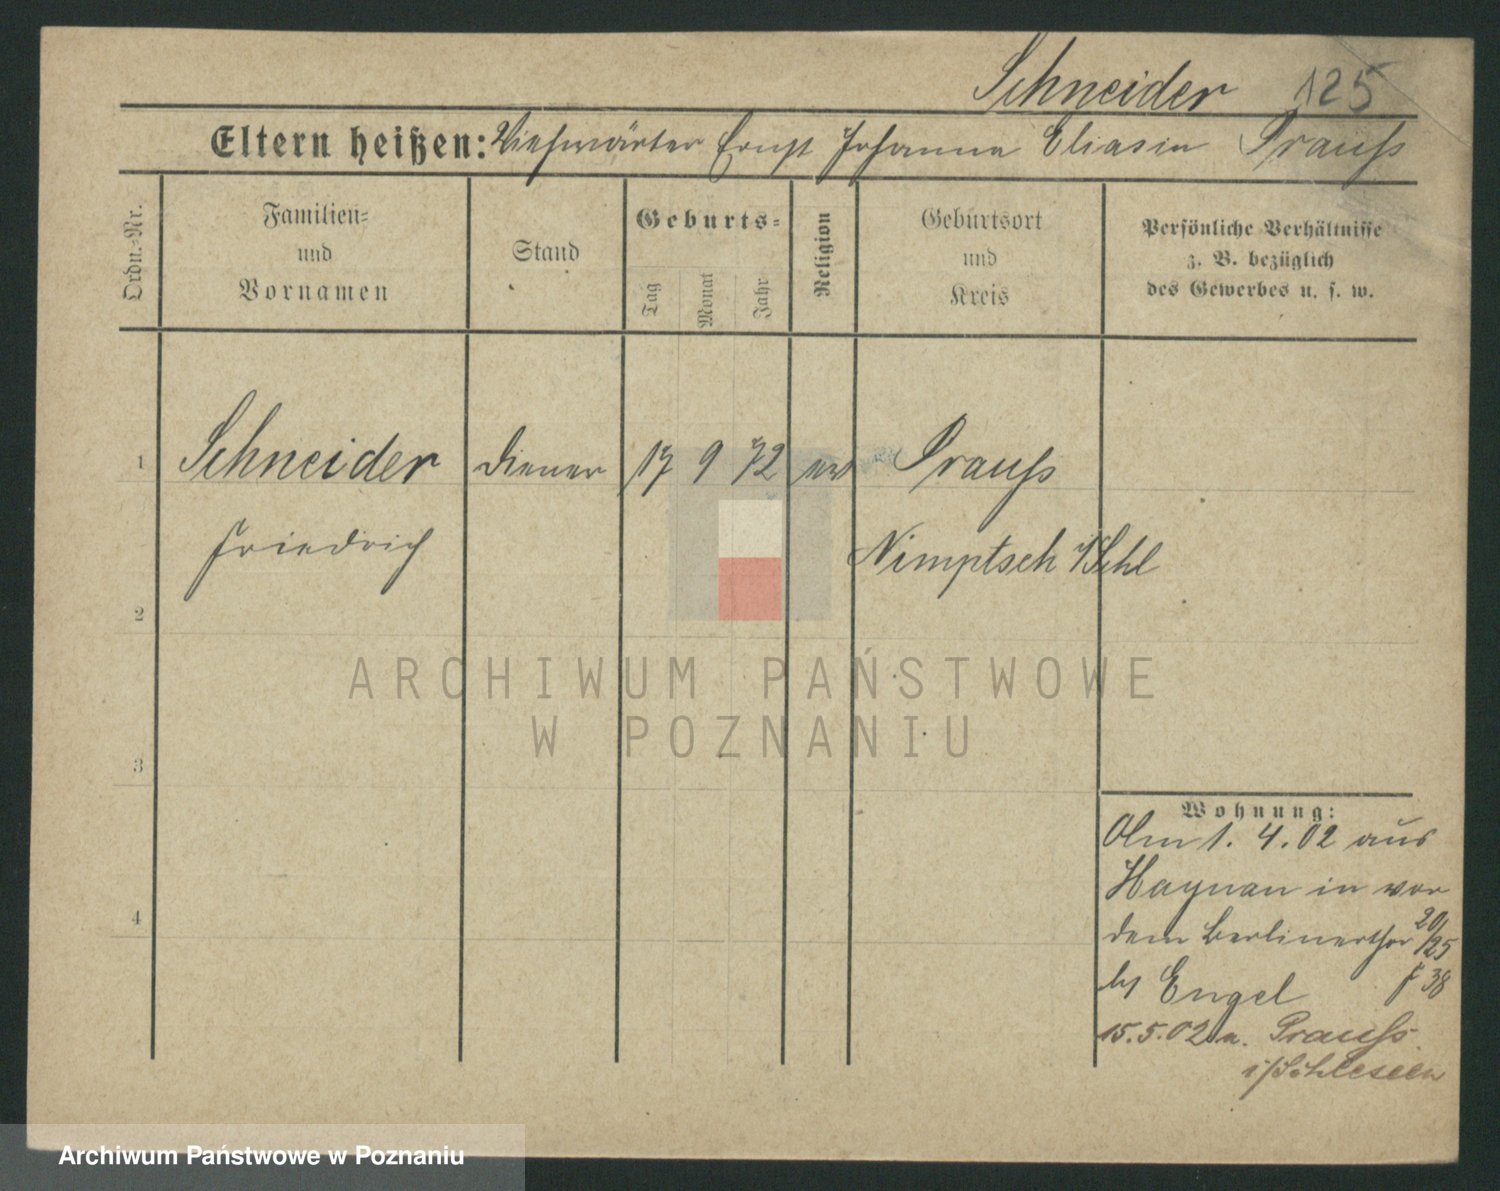 Schneider 125
Eltern heißen: Viehwärter Ernst Johanna Eliasin Prauss
Ordn.-Nr.
Familien-
und
Vornamen
Stand
Geburts-
Tag
Monat
Jahr
Religion
Geburtsort
und
Kreis
Persönliche Verhältnisse
z. B. bezüglich
des Gewerbes u. s. w.
1 Schneider Diener 17 9 72 ev Prauss
Friedrich Nimptsch i/Schl
2
3
4
Wohnung:
1. 4. 02 aus
Haynau in vor
dem Berlinerthor 20/25
by Engel F 38
15.5.02 n. Prauss
i/Schlesien
ARCHIWUM PAŃSTWOWE
W POZNANIU
Archiwum Państwowe w Poznaniu